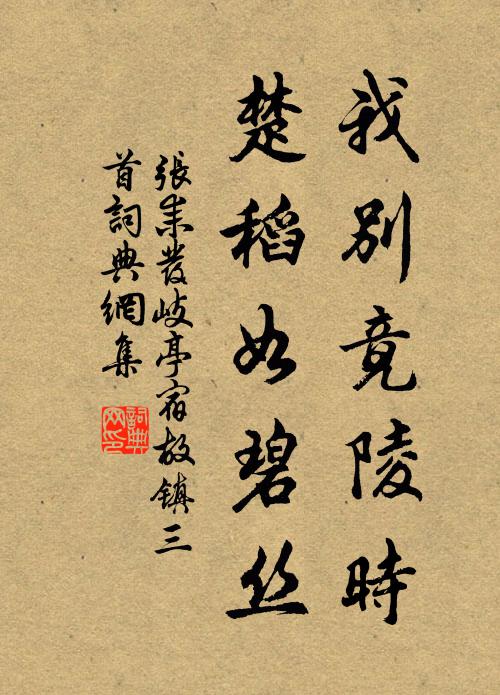 我別竟陵時
楚稻如碧丝
張耒發岐亭宿故鎮三
首詞典網集
詞典
网印